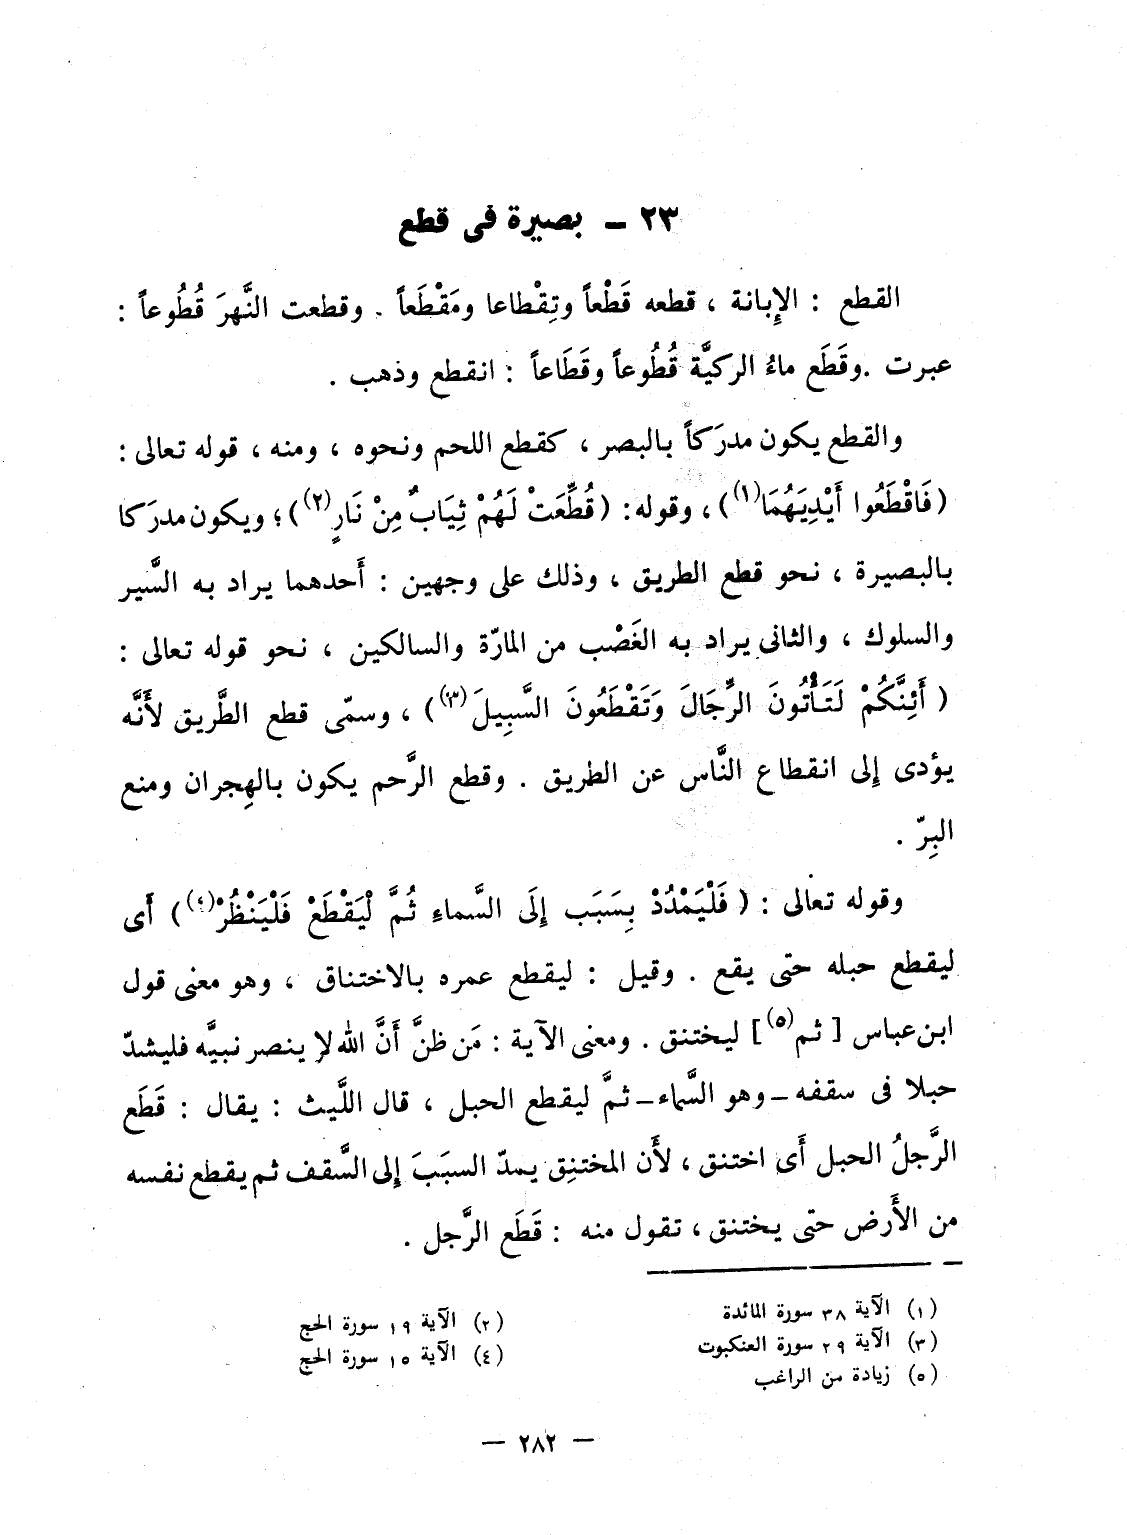 ٢٣ ـ بصيرة فى قطع
القطع : الإبانة ، قطعه قَطْعاً وتِقْطاعا ومَقْطَعاً . وقطعت النَّهرَ قُطُوعاً :
عبرت .وقَطَع ماءُ الركيَّة قُطُوعاً وقَطَاعاً : انقطع وذهب .
والقطع يكون مدرَكاً بالبصر ، كقطع اللحم ونحوه ، ومنه ، قوله تعالى :
( فَاقْطَعُوا أَيْدِيَهُمَا(١) ) ، وقوله : ( قُطِّعَتْ لَهُمْ ثِيَابٌ مِنْ نَارٍ(٢) ) ؛ ويكون مدرَكا
بالبصيرة ، نحو قطع الطريق ، وذلك على وجهين : أَحدهما يراد به السَّير
والسلوك ، والثانى يراد به الغَصْب من المارّة والسالكين ، نحو قوله تعالى :
( أَئِنَّكُمْ لَتَأْتُونَ الرِّجَالَ وَتَقْطَعُونَ السَّبِيلَ(٣) ) ، وسمّى قطع الطَّريق لأَنَّه
يؤدى إِلى انقطاع النَّاس عن الطريق . وقطع الرَّحم يكون بالهِجران ومنع
البِرّ .
وقوله تعالى : ( فَلْيَمْدُدْ بِسَبَب إِلَى السَّماءِ ثُمَّ لْيَقْطَعْ فَلْيَنْظُرْ(٤) ) أَى
ليقطع حبله حتى يقع . وقيل : ليقطع عمره بالاختناق ، وهو معنى قول
ابن عباس [ ثم(٥) ] ليختنق . ومعنى الآية : مَن ظنَّ أَنَّ الله لا ينصر نبيَّه فليشدّ
حبلا فى سقفه ـ وهو السَّماء ـ ثمَّ ليقطع الحبل ، قال اللَّيث : يقال : قَطَع
الرَّجلُ الحبل أَى اختنق ، لأَن المختنِق يمدّ السبَبَ إِلى السَّقف ثم يقطع نفسه
من الأَرض حتى يختنق ، تقول منه : قَطَع الرَّجل .
(١) الآية ٣٨ سورة المائدة (٢) الآية ١٩ سورة الحج
(٣) الآية ٢٩ سورة العنكبوت (٤) الآية ١٥ سورة الحج
(٥) زيادة من الراغب
— ٢٨٢ —